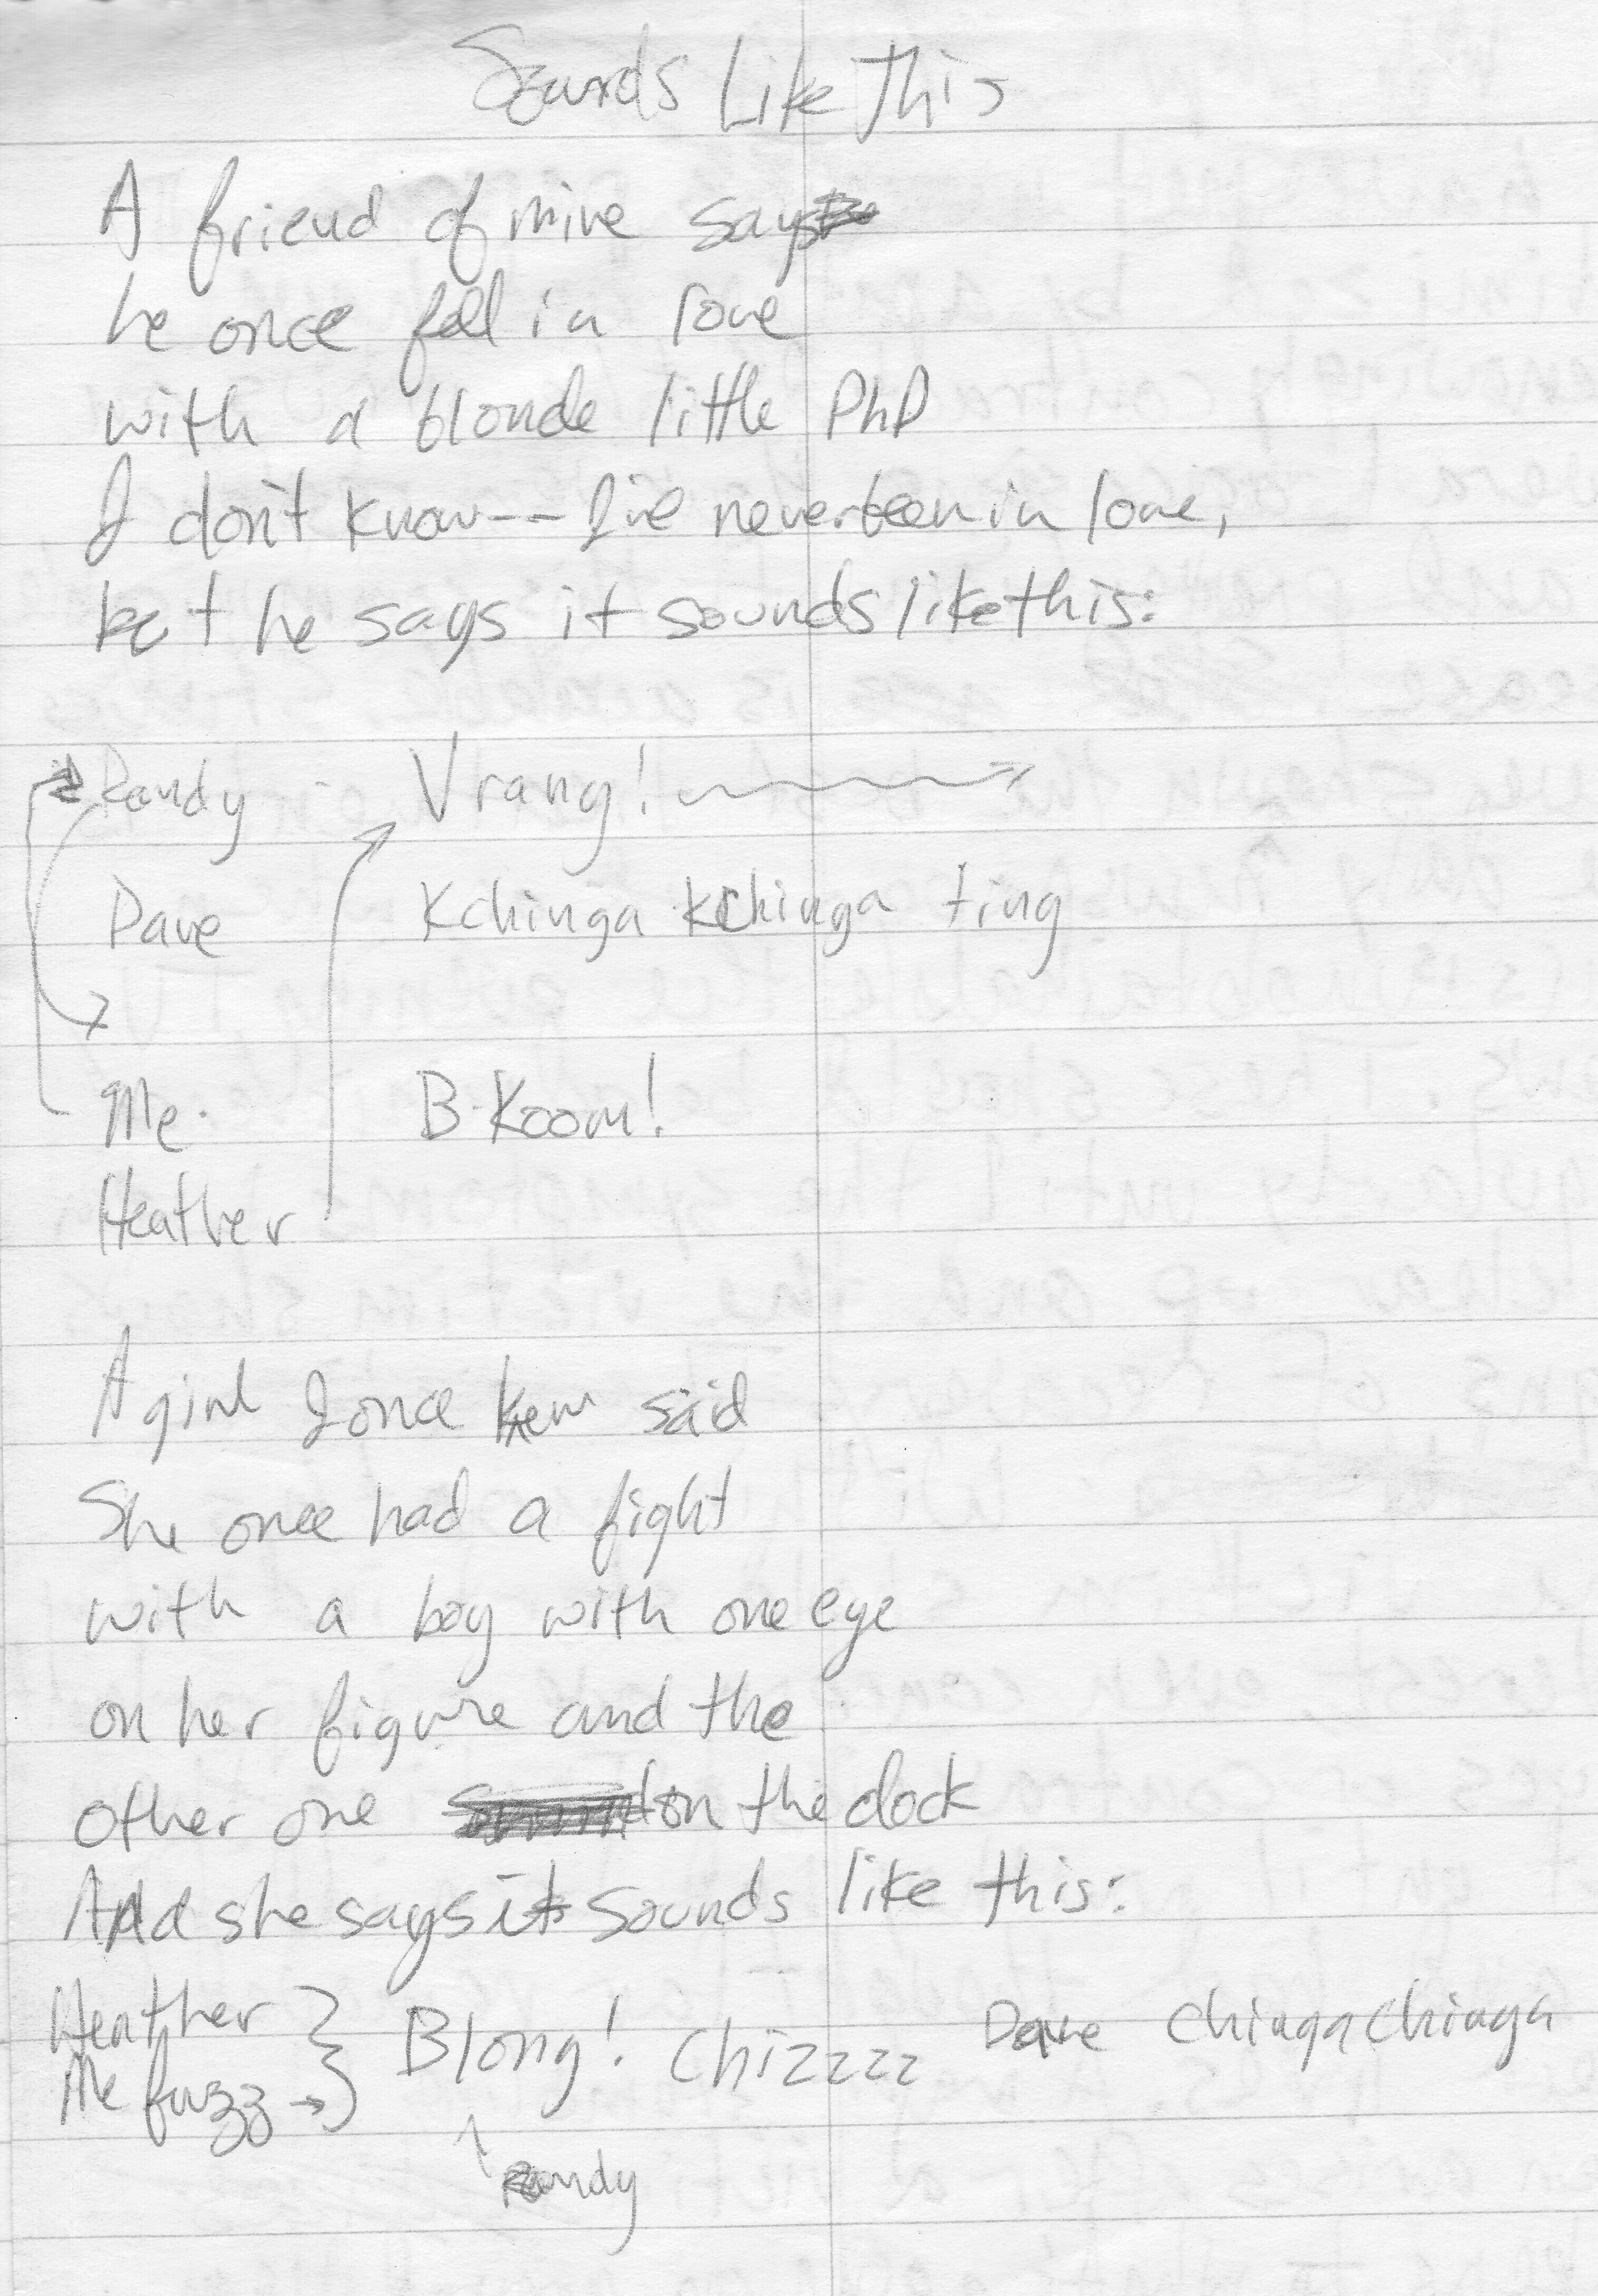 Sounds Like This
A friend of mine says
he once fell in love
with a blonde little PhD
I don't know -- I've never been in love,
but he says it sounds like this:
Randy Vrang!
Dave Kchinga Kchinga ting
Me B-Koom!
Heather
A girl I once knew said
She once had a fight
with a boy with one eye
on her figure and the
other one on the clock
And she says it sounds like this:
Heather Blong! Chizzzz Dave Chinga Chinga
Me fuzz
Randy